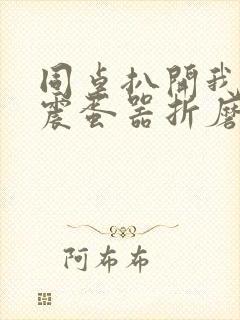 同桌扒開我
震蛋器折磨
阿布布